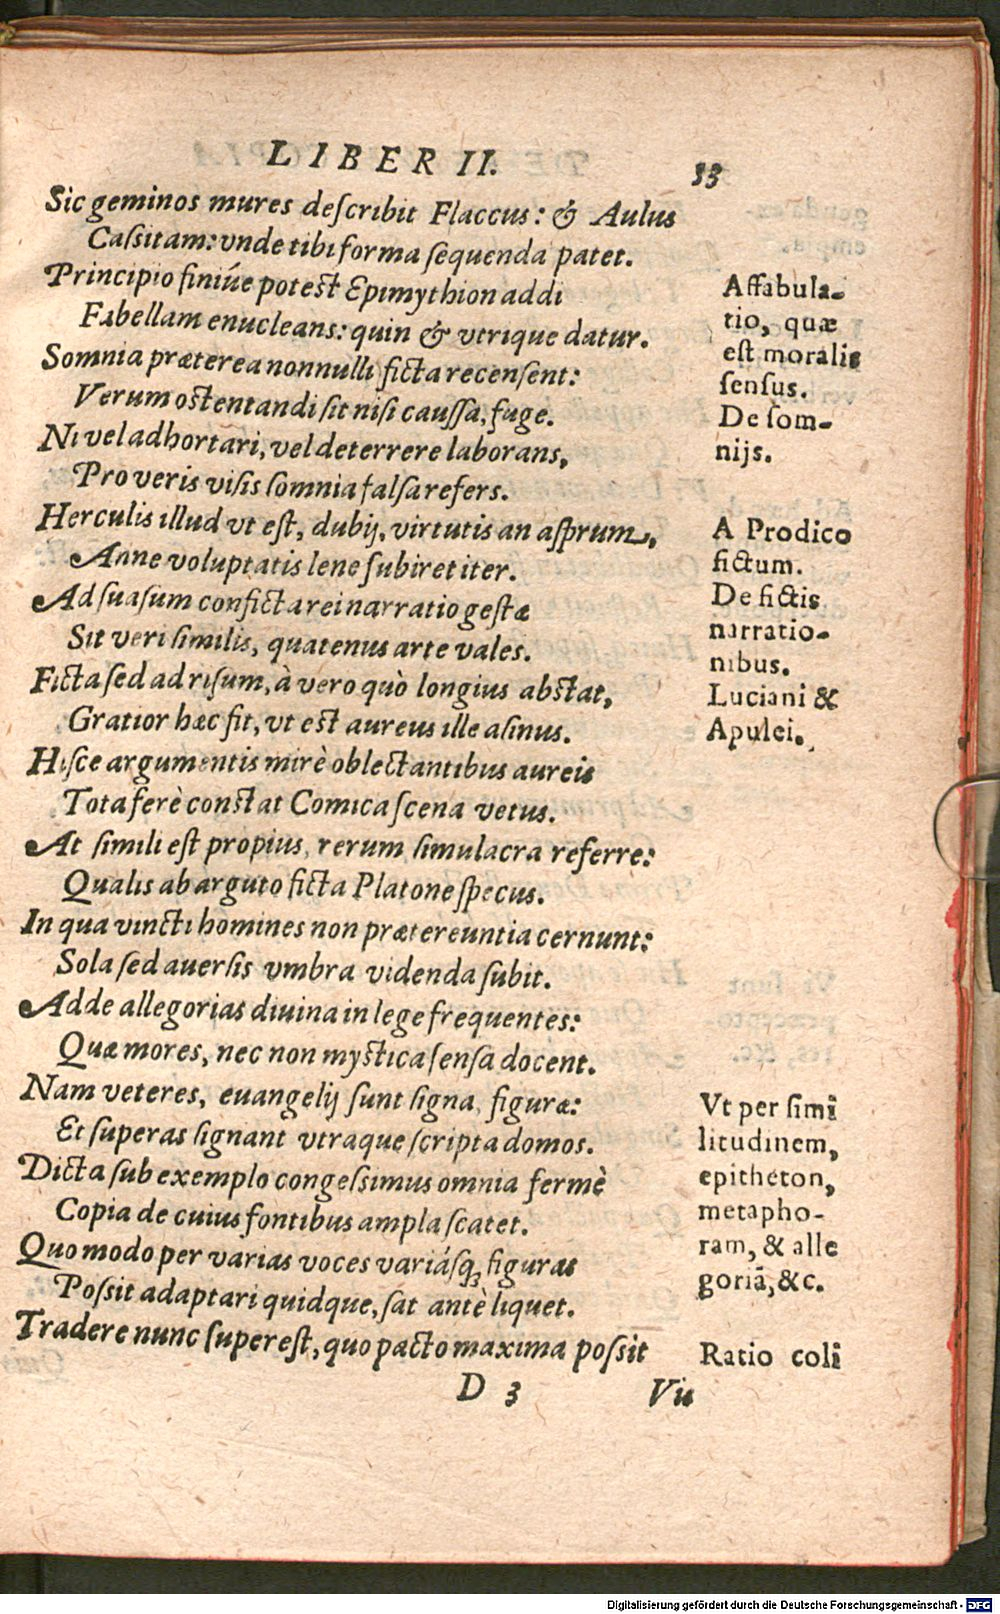 LIBER II. 33
Sic geminos mures deſcribit Flaccus: & Aulus
Caſsitam: vnde tibi forma ſequenda patet.
Principio finiúe poteſt Epimythion addi
Fabellam enucleans: quin & vtrique datur.
Somnia præterea nonnulli ficta recenſent:
Verum oſtentandi ſit niſi cauſſa, fuge.
Ni vel adhortari, vel deterrere laborans,
Pro veris viſis ſomnia falſa refers.
Herculis illud vt eſt, dubij, virtutis an aſprum,
Anne voluptatis lene ſubiret iter.
Ad ſuaſum conficta rei narratio geſtæ
Sit veri ſimilis, quatenus arte vales.
Ficta ſed ad riſum, à vero quò longius abſtat,
Gratior hæc fit, vt eſt aureus ille aſinus.
Hiſce argumentis mirè oblectantibus aureis
Tota ferè conſtat Comica ſcena vetus.
At ſimili eſt propius, rerum ſimulacra referre:
Qualis ab arguto ficta Platone ſpecus.
In qua vincti homines non prætereuntia cernunt:
Sola ſed auerſis vmbra videnda ſubit.
Adde allegorias diuina in lege frequentes:
Quæ mores, nec non myſtica ſenſa docent.
Nam veteres, euangelij ſunt ſigna, figuræ:
Et ſuperas ſignant vtraque ſcripta domos.
Dicta ſub exemplo congeſsimus omnia fermè
Copia de cuius fontibus ampla ſcatet.
Quo modo per varias voces variáſq; figuras
Poſsit adaptari quidque, ſat antè liquet.
Tradere nunc ſupereſt, quo pacto maxima poſsit
D 3 Vis
Affabula-
tio, quæ
eſt moralis
ſenſus.
De ſom-
nijs.
A Prodico
fictum.
De fictis
narratio-
nibus.
Luciani &
Apulei.
Vt per ſimi
litudinem,
epitheton,
metapho-
ram, & alle
goriā, &c.
Ratio coli
Digitalisierung gefördert durch die Deutsche Forschungsgemeinschaft - DFG